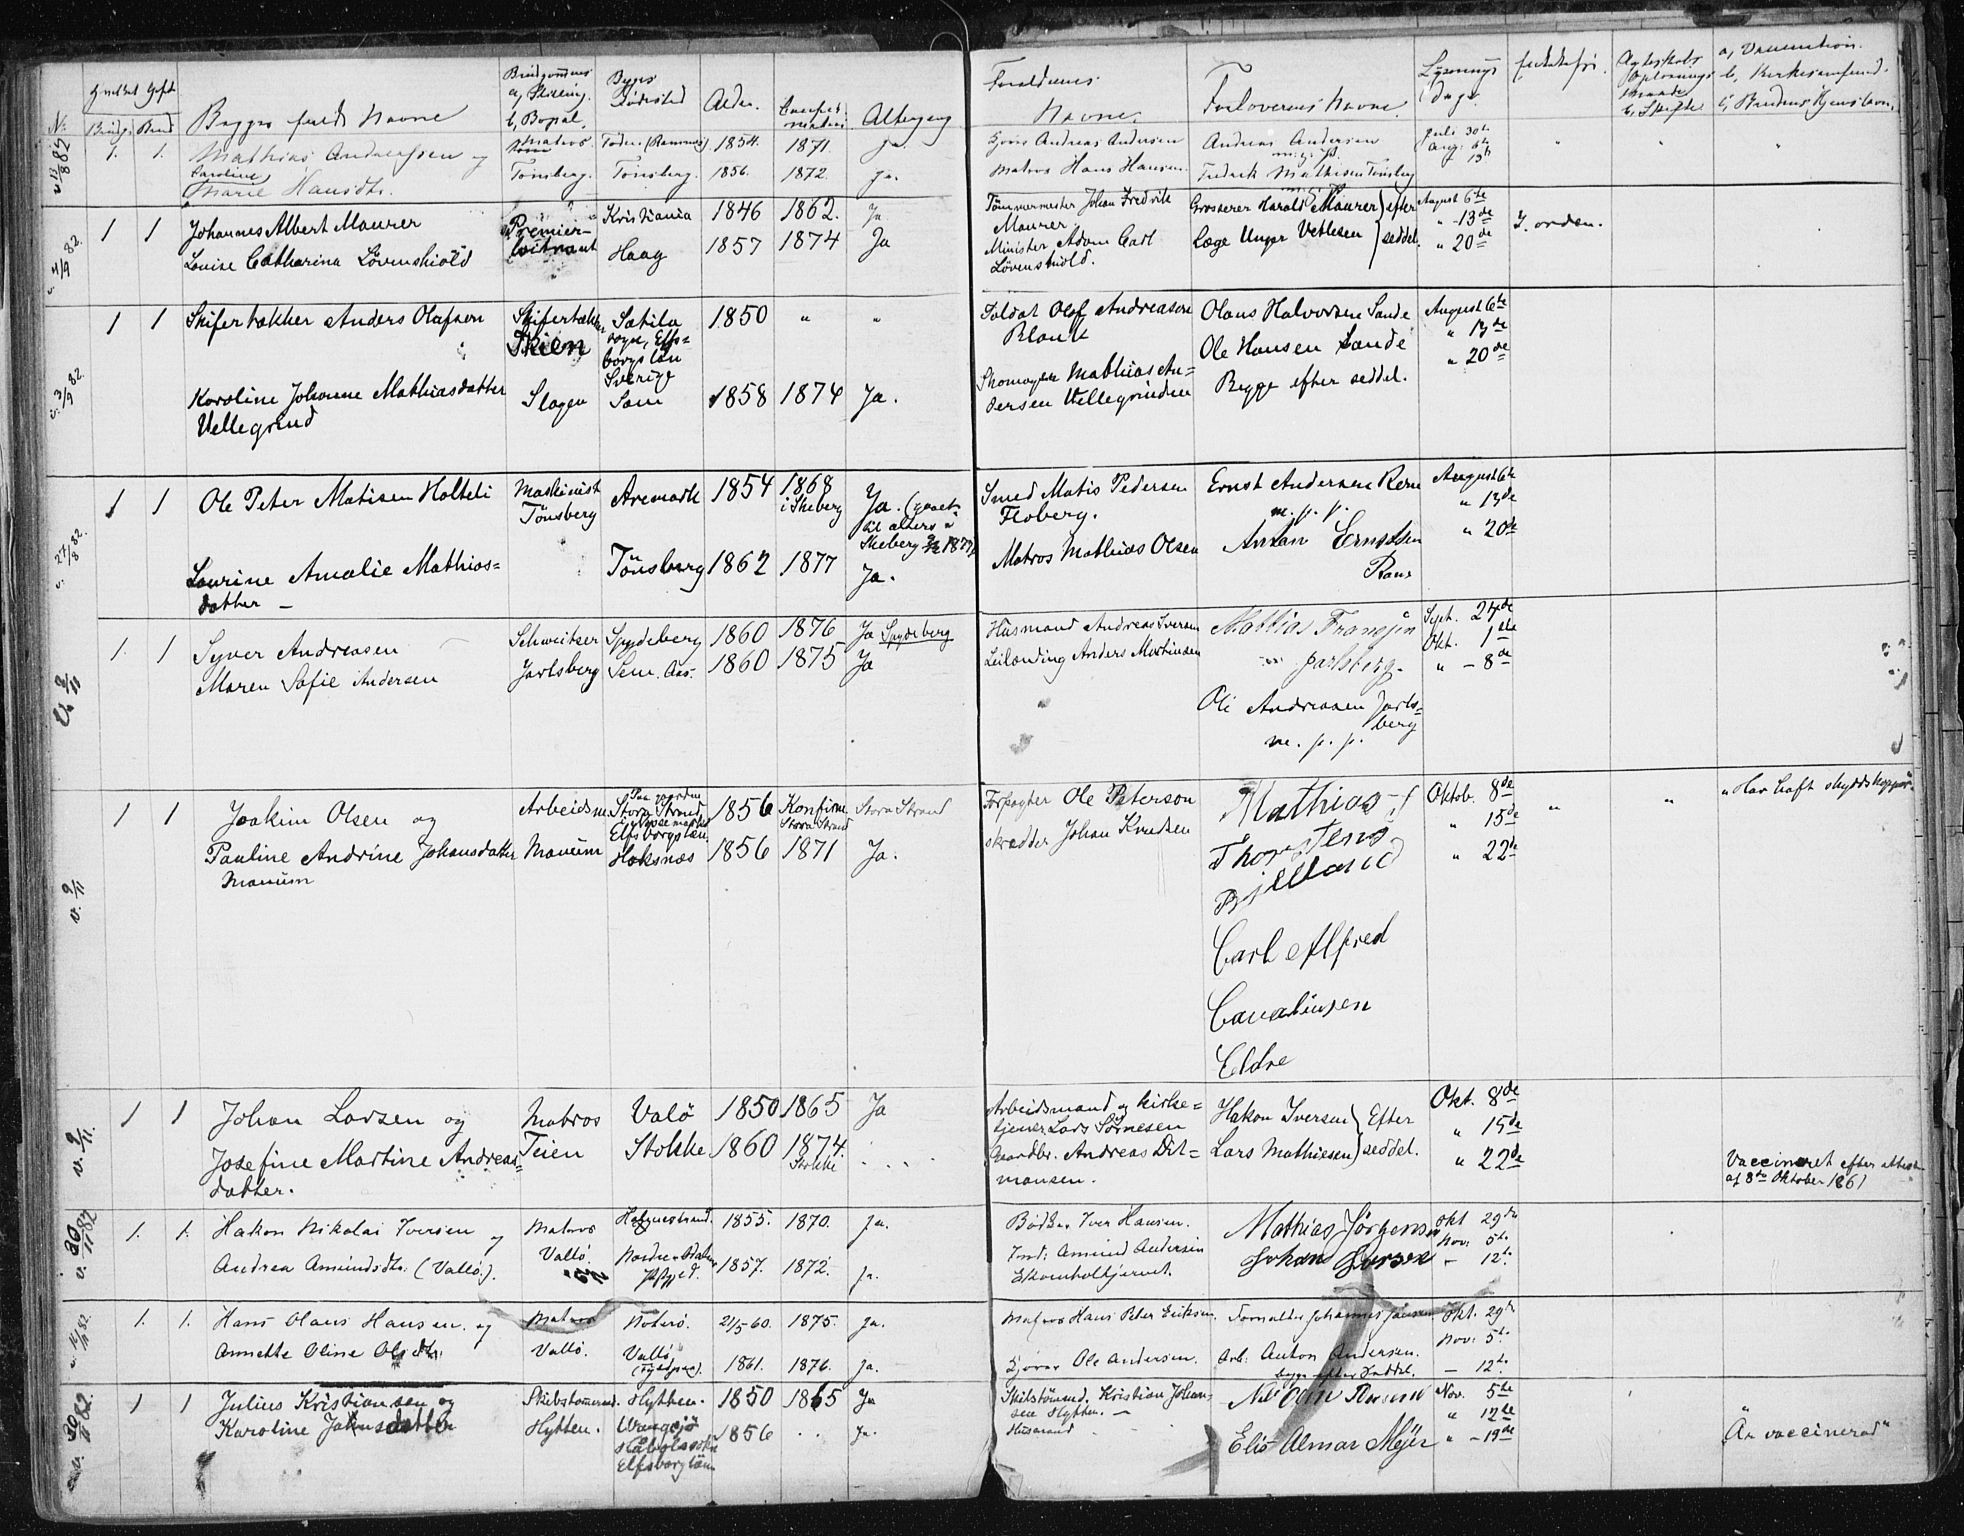 No
Hvilket Gift
Brudg. Brud
Begges fulde Navne
Brudgommens
a, Stilling.
b, Bopæl.
Begges
Fødested
Alder.
Altergang
Forældrenes
Navne.
Forlovernes Navne.
Lysnings
dage.
a, Vaccination.
b, Kirkesamfund.
v. 13/8 82
1. 1. Mathias Andreassen og
Caroline
Marie Hansdtr.
Matros.
Tønsberg.
Tønsberg.
1854. 1871. Ja.
1856. 1872. Ja.
Andreas Andersen
Matros Hans Hansen
Andreas Andersen
m. p. p.
Fredrik Mathisen Tønsberg
Juli 30te
Aug. 6te
" 13de
v. 4/9 82.
1 1 Johannes Albert Maurer
Louise Catharina Løvenskiold
Premier-
løitnant
Kristiania 1846 1862. Ja
Haag 1857 1874 Ja
Tømmermester Johan Fredrik
Maurer
Minister Adam Carl
Løvenskiold.
Grosserer Harald Maurer } efter
Læge Unger Vetlesen } seddel.
August 6te
" 13de
" 20de
I orden.
v. 3/9 82.
1 1 Skifertækker Anders Olafsen
Skifertækker
Skien
Sätila
sogn, Elfs=
borgs län
Sverige
1850 " "
Karoline Johanne Mathiasdatter
Vellegrind
Slagen Sam 1858 1874 Ja.
Soldat Olof Andreasson
Blank
Skomager Mathias An=
dersen Vellegrinden
Olaus Halvorsen Sande
Ole Hansen Sande
Begge efter seddel.
August 6te
" 13de
" 20de
v. 27/8 82.
1 1 Ole Peter Matisen Holteli
Maskinist
Tønsberg
Aremark 1854 1868
i Skeberg
Ja. (gaaet
til alters i
Skeberg 1877)
Laurine Amalie Mathias=
datter —
Tönsberg 1862 1877 Ja.
Smed Matis Pedersen
Floberg.
Matros Mathias Olsen
Ernst Andersen
m. p. p.
Anton Ernstsen
August 6te
" 13de
" 20de
v. 2/11
1. 1 Syver Andreasen
Maren Sofie Andersen
Schweitser
Jarlsberg
Spydeberg 1860 1876 Ja Spydeberg
Sem. Aas. 1860 1875 Ja
Husmand Andreas Iversen
Leilænding Anders Martinsen
Mattias Fransen
Jarlsberg.
Ole Andreasen Jarls=
berg
m. p. p.
Sept. 24de
Okt. 1ste
" — 8de
v. 9/11
1 1 Joakim Olsen og
Pauline Andrine Johansdatter
Manum
Arbeidsm.
Manum
Paa gaarden
Stora Strand
Elfsborgs län
Høksnæs
1856 Konfirm.
Stora Strand
Stora Strand
1856 1871 Ja.
Forpagter Ole Peterson
skrædder Johan Knudsen
Mathias
Thorstens
Bjelland
Carl Alfred
Eldre
Oktob. 8de
" 15de
" 22de
" "
"Har haft skyddskoppor.
v. 9/11.
1 1 Johan Larsen og
Josefine Martine Andreas=
datter.
Matros
Teien
Valø 1850 1865 Ja
Stokke 1860 1874.
Stokke
Arbeidsmand og kirke=
tjener Lars Sørnesen
Gaardbr. Andreas Dit=
mansen.
Hakon Iversen } Efter
Lars Mathiesen } seddel.
Okt. 8de
" 15de
" 22de
Vaccineret efter attest
af 8de Oktober 1861
v. 30/11 82
1. 1. Hakon Nikolai Iversen og
Andrea Amundsdtr. (Vallø).
Matros
Vallø.
Holmestrand. 1855. 1870. Ja.
Nordre 1857. 1872. Ja.
Bødker Iver Hansen.
Amund Andersen
Mathias Jørgensen
Johan Larsen
Okt 29de
Nov. 5te
— 12te
v. 16/11 82.
1. 1. Hans Olaus Hansen. og
Annette Oline Olsdtr.
Matros
Vallø.
Nøterø. 21/5 60. 1875. Ja.
Vallø 1861. 1876. Ja.
Matros Hans Peter Eriksen.
Ole Andersen.
Johannes Jansen
Arb. Anton Andersen.
begge efter Seddel.
Okt. 29de
Nov. 5te
— 12te
v. 30/11 82.
1 1 Julius Kristiansen og
Karoline Johnsdatter
Skibstømmermd.
Hytten.
Hytten. 1850 1865 Ja
Elfsborg län
1856 . . Ja.
Skibstømmd. Kristian Johan-
sen Hytten. —
Husmand
Elis Almar Mejer
Nov. 5te
" 12te
" — 19de
"Är vaccinerad"